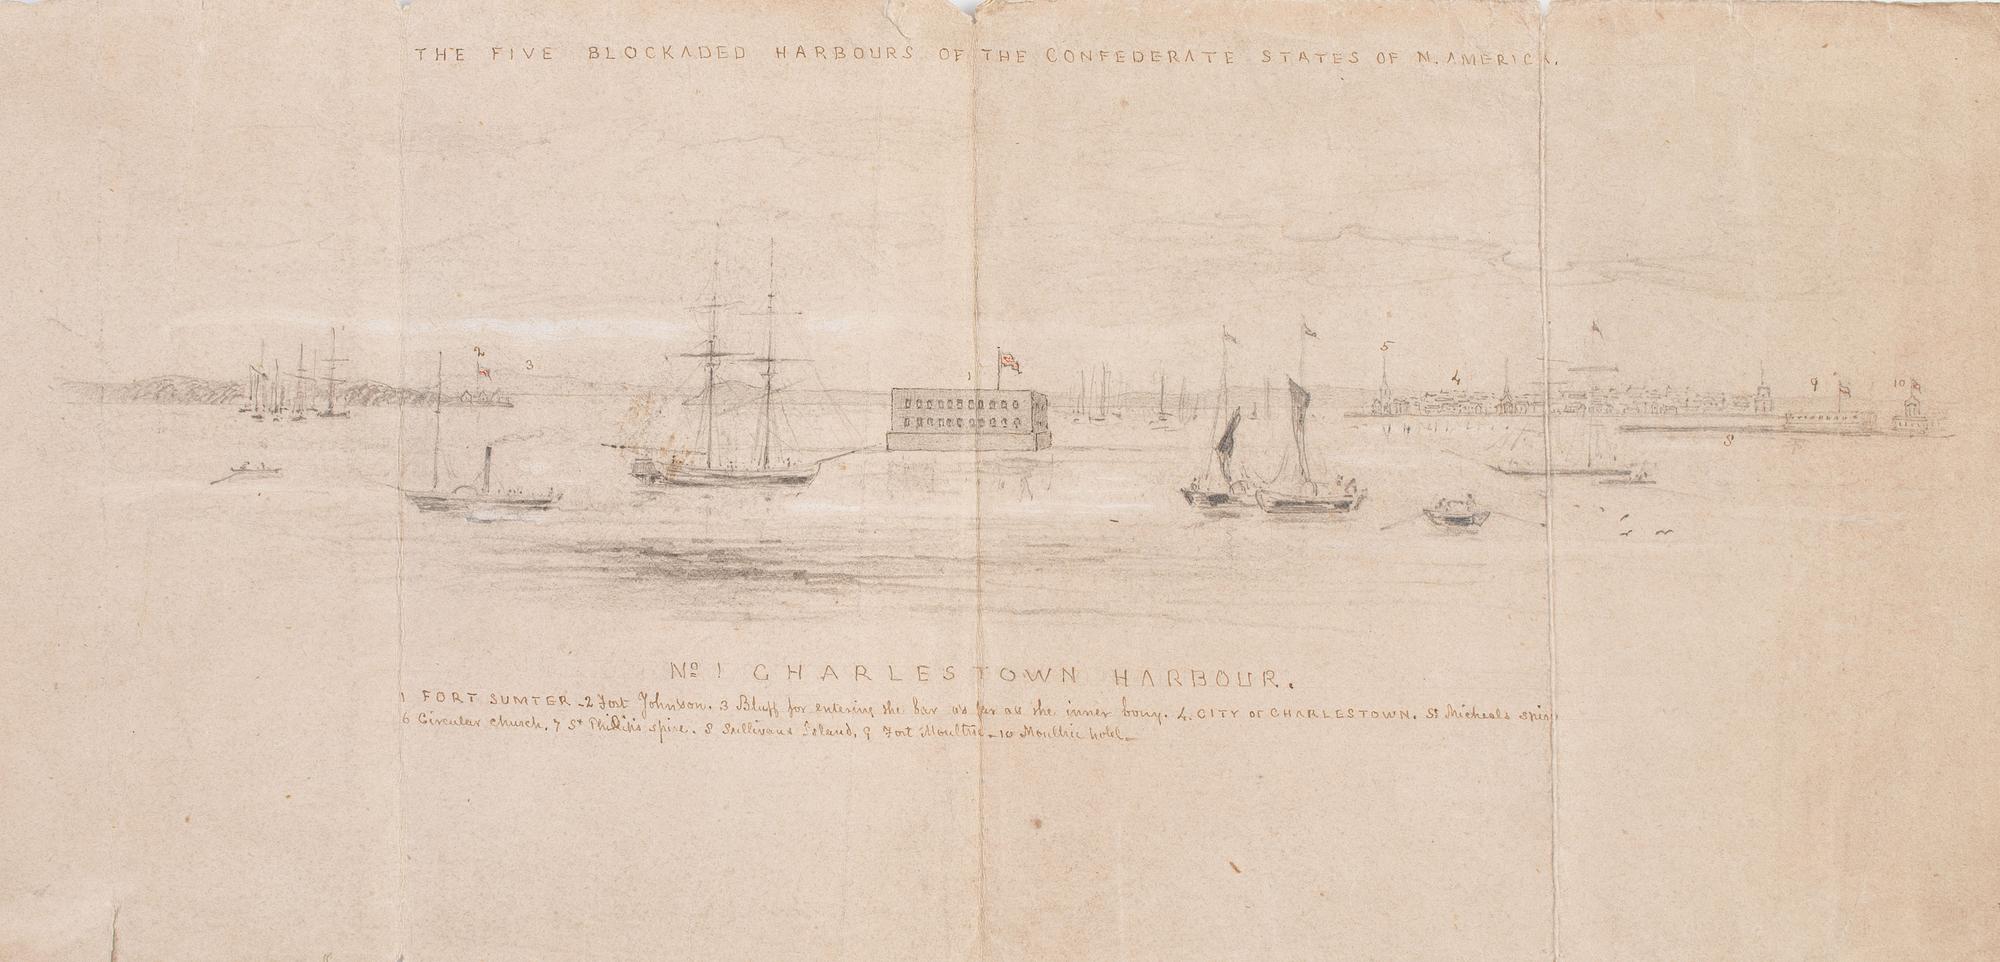 THE FIVE BLOCKADED HARBOURS OF THE CONFEDERATE STATES OF N. AMERICA.
2
3
1
5
4
9
10
8
No 1 CHARLESTOWN HARBOUR.
1 FORT SUMTER - 2 Fort Johnson. 3 Bluff for entering the bar as far as the inner bouy. 4. CITY OF CHARLESTOWN. St Micheals spire
6 Circular church. 7 St Philip's spire. 8 Sullivans Island, 9 Fort Moultrie - 10 Moultrie hotel -